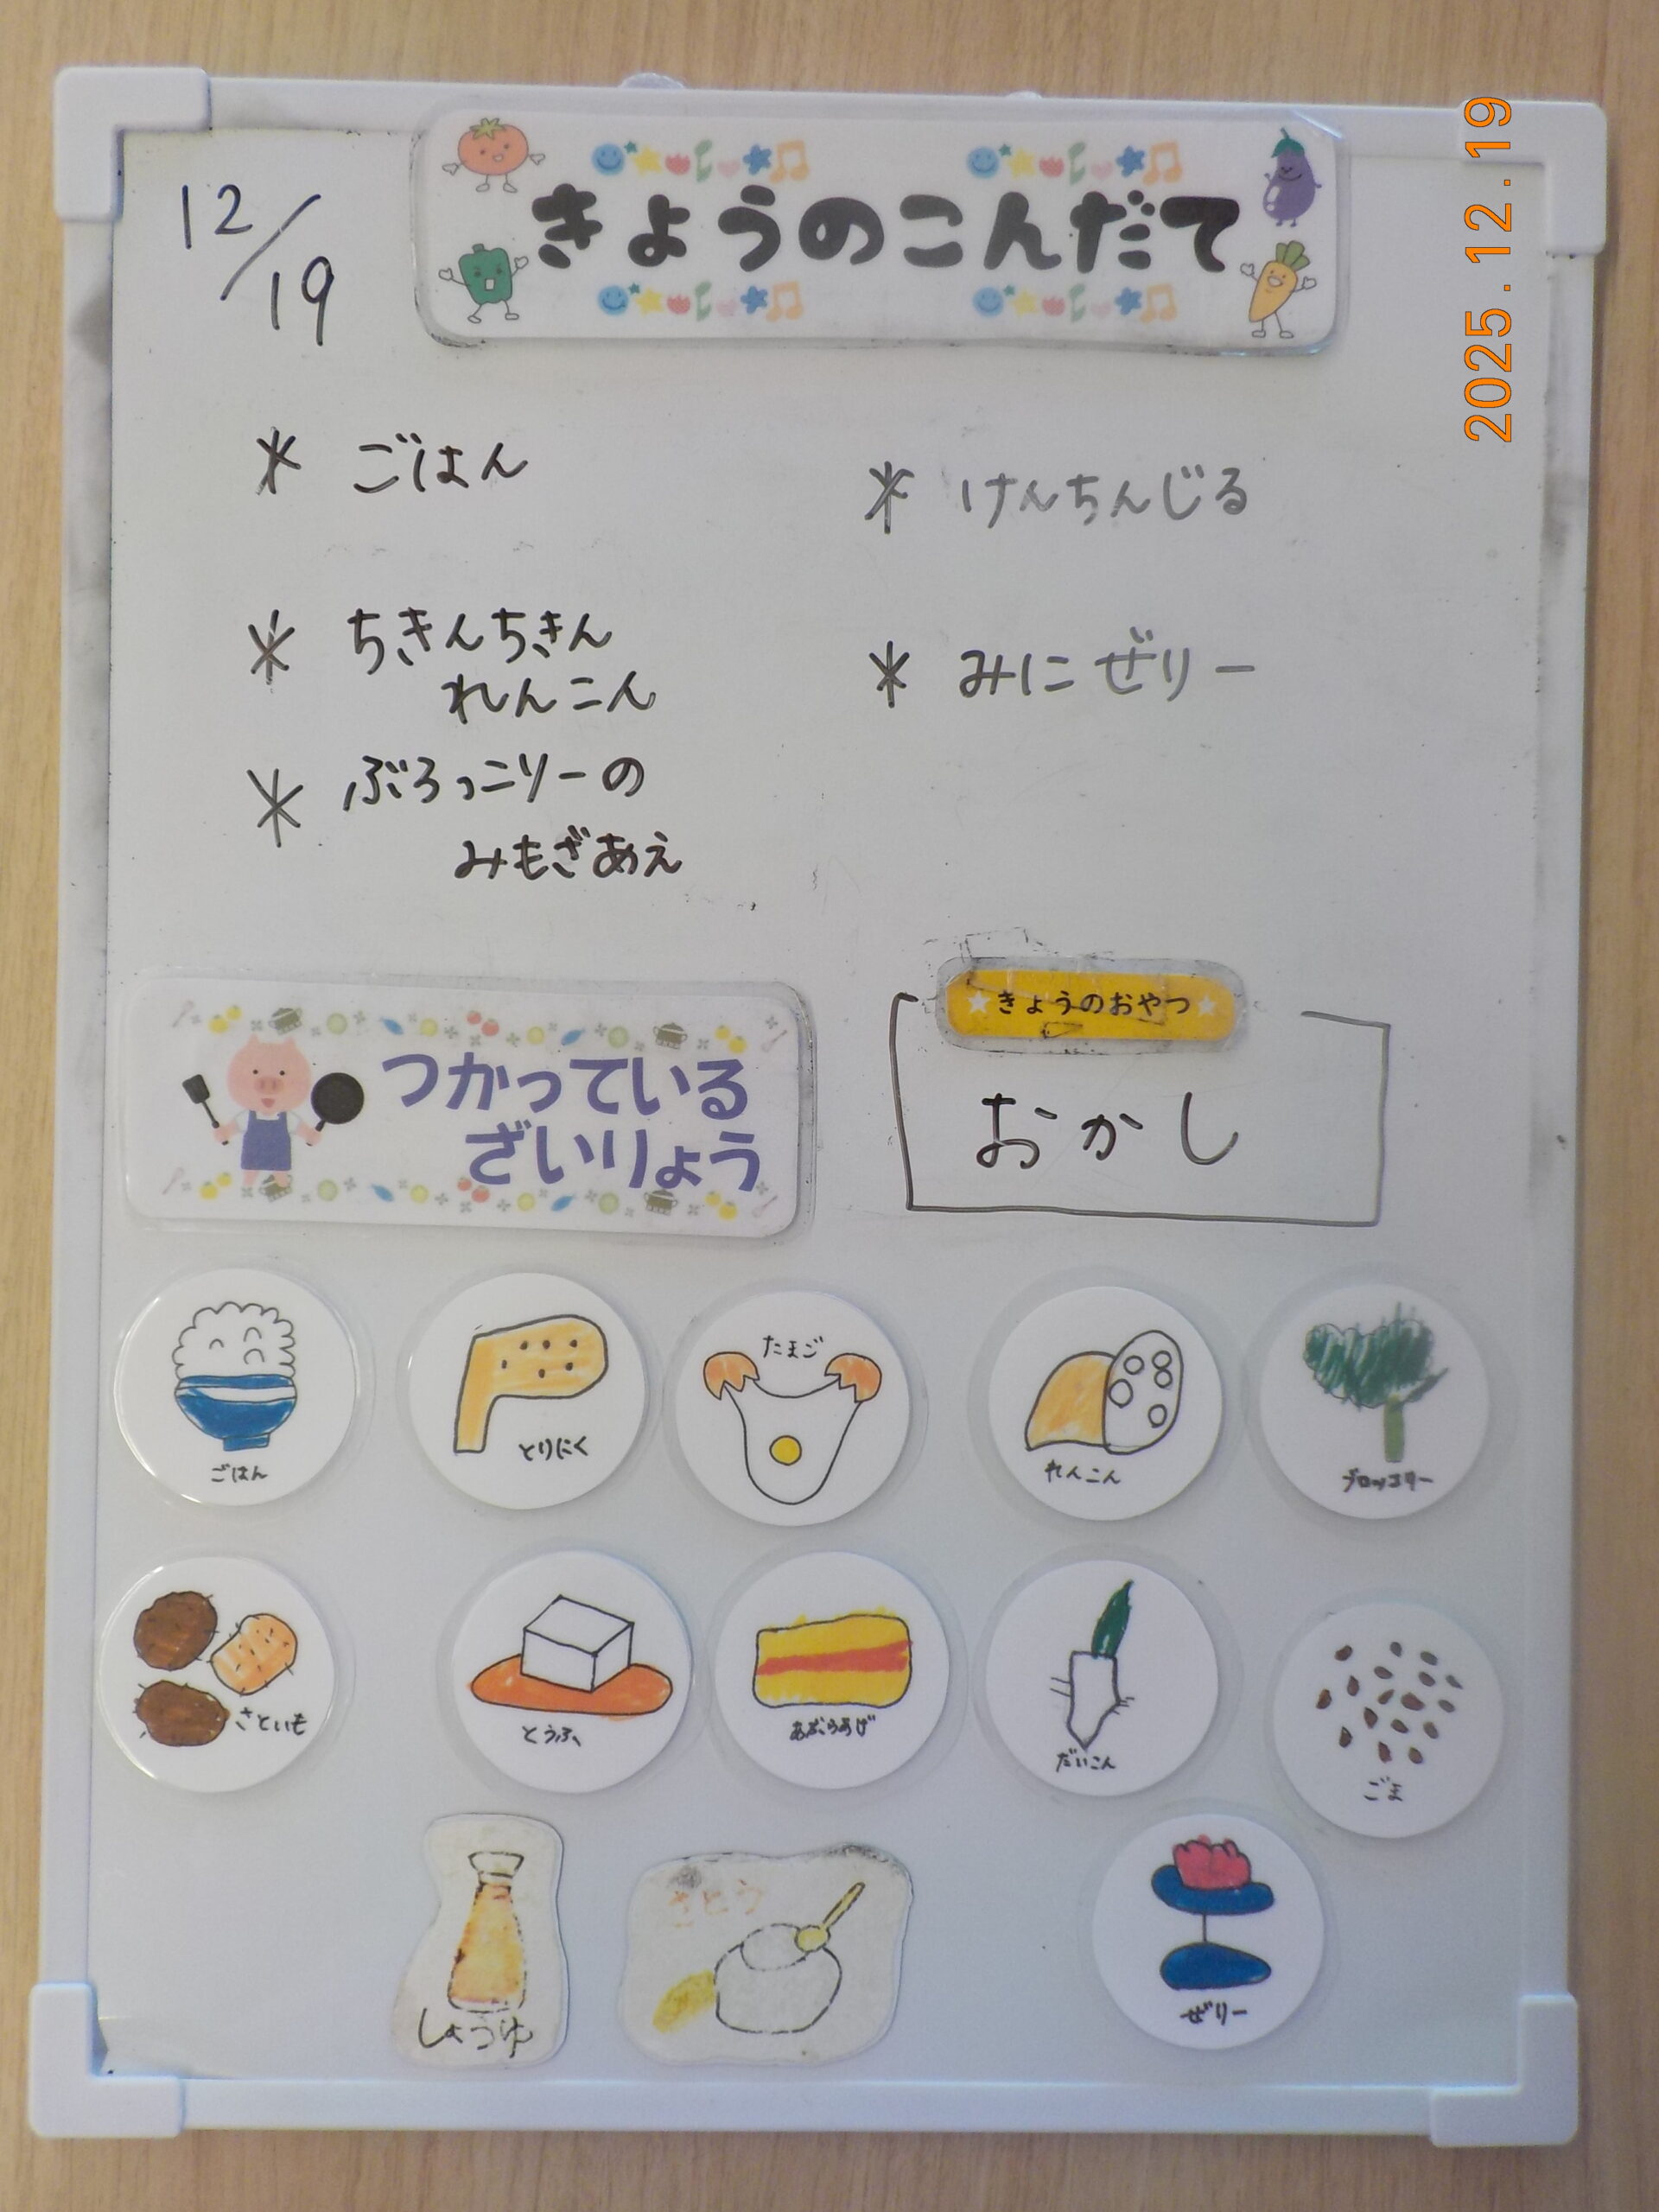 12/19
きょうのこんだて
2025.12.19
* ごはん
* ちきんちきん
れんこん
* ぶろっこりーの
みもざあえ
* けんちんじる
* みにぜりー
つかっている
ざいりょう
きょうのおやつ
おかし
ごはん
とりにく
たまご
れんこん
ブロッコリー
さといも
とうふ
あぶらあげ
だいこん
ごま
しょうゆ
さとう
ぜりー